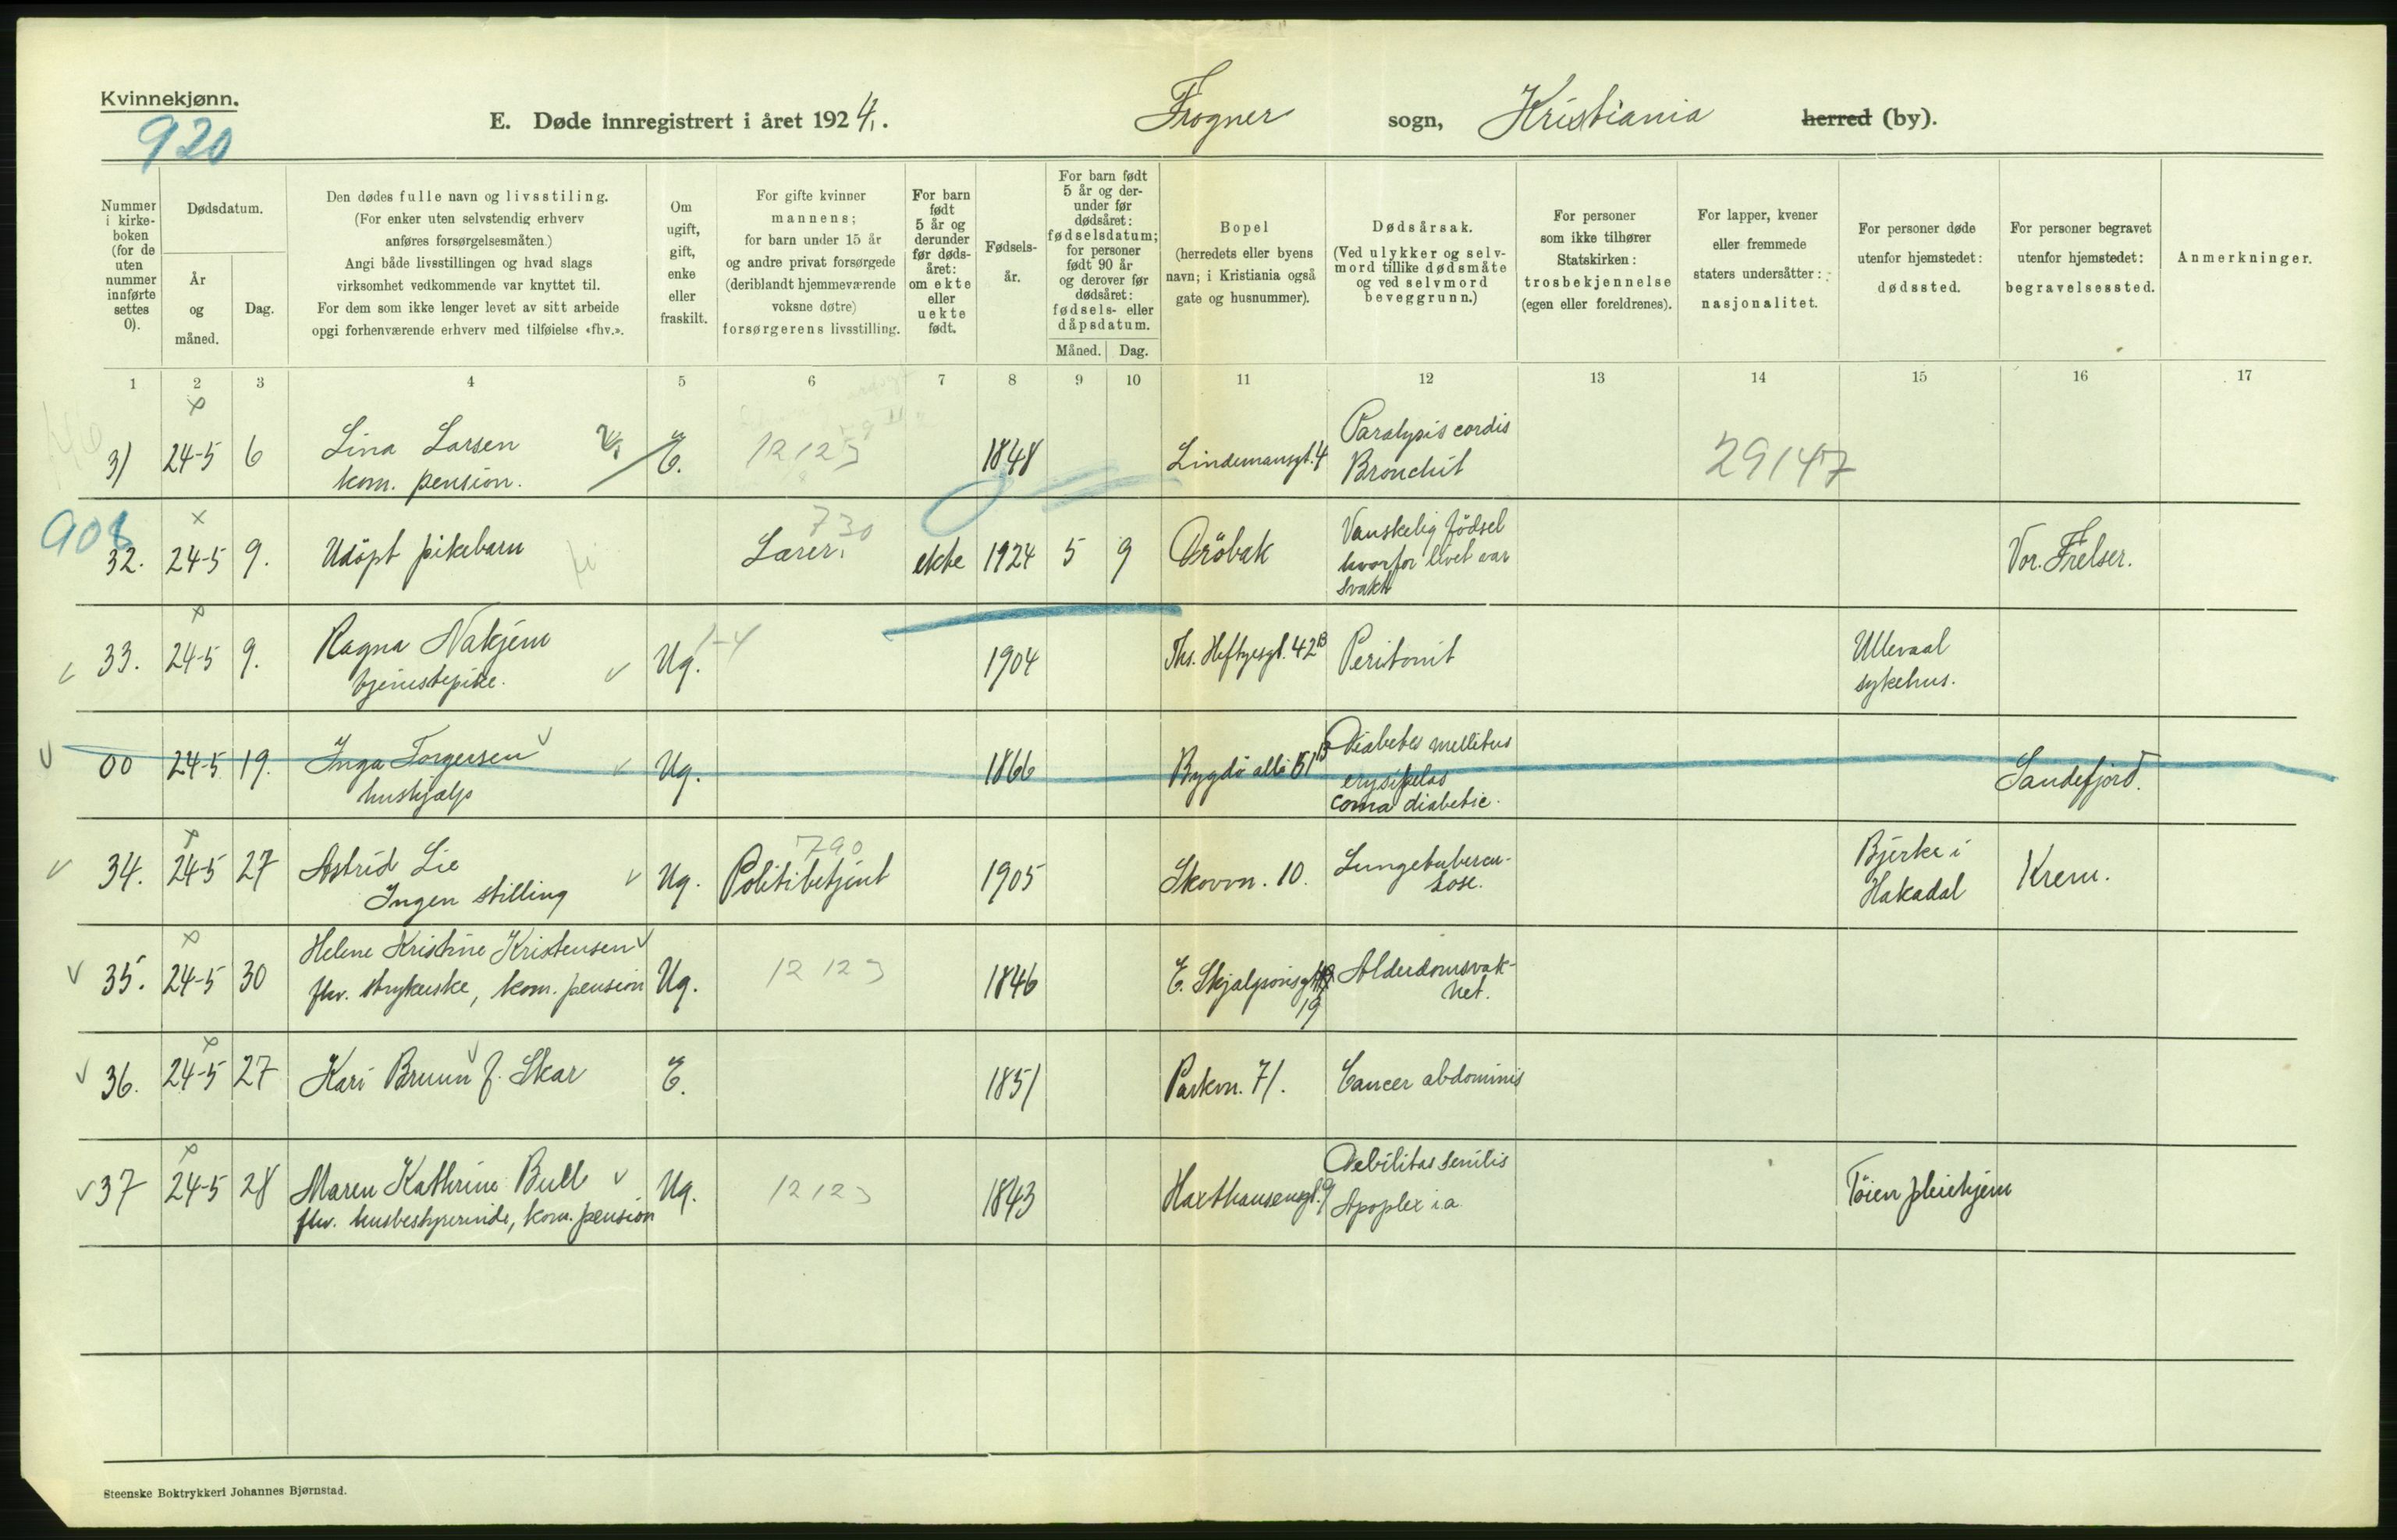 Kvinnekjønn.
920
E. Døde innregistrert i året 1924. Frogner sogn, Kristiania herred (by).
Nummer i kirkeboken (for de uten nummer innførte settes 0).
Dødsdatum.
År og måned.
Dag.
Den dødes fulle navn og livsstiling.
(For enker uten selvstendig erhverv
anføres forsørgelsesmåten.)
Angi både livsstillingen og hvad slags
virksomhet vedkommende var knyttet til.
For dem som ikke lenger levet av sitt arbeide
opgi forhenværende erhverv med tilføielse «fhv.».
Om
ugift,
gift,
enke
eller
fraskilt.
For gifte kvinner
mannens;
for barn under 15 år
og andre privat forsørgede
(deriblandt hjemmeværende
voksne døtre)
forsørgerens livsstilling.
For barn
født
5 år og
derunder
før døds-
året:
om ekte
eller
uekte
født.
Fødsels-
år.
For barn født
5 år og der-
under før
dødsåret:
fødselsdatum;
for personer
født 90 år
og derover før
dødsåret:
fødsels- eller
dåpsdatum.
Måned. Dag.
Bopel
(herredets eller byens
navn; i Kristiania også
gate og husnummer).
Dødsårsak.
(Ved ulykker og selv-
mord tillike dødsmåte
og ved selvmord
beveggrunn.)
For personer
som ikke tilhører
Statskirken:
trosbekjennelse
(egen eller foreldrenes).
For lapper, kvener
eller fremmede
staters undersåtter:
nasjonalitet.
For personer døde
utenfor hjemstedet:
dødssted.
For personer begravet
utenfor hjemstedet:
begravelsessted.
Anmerkninger.
1 2 3 4 5 6 7 8 9 10 11 12 13 14 15 16 17
31 24-5 6 Lina Larsen E. 12123 1848 Lindemansgt. 4 Paralysis cordis 29147
kom. pension. Bronchit
908
32. 24-5 9. Udöpt pikebarn 730 Lærer. ekte 1924 5 9 Dröbak Vanskelig födsel Vor. Frelser.
hvorfor livet var
svakt
33. 24-5 9. Ragna Nakjem Ug. 1-4 1904 Ths. Heftyesgt. 42B Peritonit Ullevaal
tjenestepike. sykehus.
00 24-5 19. Inga Torgersen Ug. 1866 Bygdö allé 51B Diabetes mellitus Sandefjord.
hushjælp erysipelas
coma diabetic.
34. 24-5 27 Astrid Lie Ug. 790 Politibetjent 1905 Skovvn. 10. Lungetubercu- Bjerke i Krem.
Ingen stilling lose. Hakadal
35. 24-5 30 Helene Kristine Kristensen Ug. 12123 1846 E. Skjalgsonsgt. 19 Alderdomsvak-
fhv. strykerske, kom. pension het.
36. 24-5 27 Kari Bruun f. Skar E. 1851 Parkvn. 71. Cancer abdominis
37 24-5 28 Maren Kathrine Bull Ug. 12123 1843 Haxthausensgt. 9 Debilitas senilis Töien pleiehjem
fhv. husbestyrerinde, kom. pension Apoplexia
Steenske Boktrykkeri Johannes Bjørnstad.